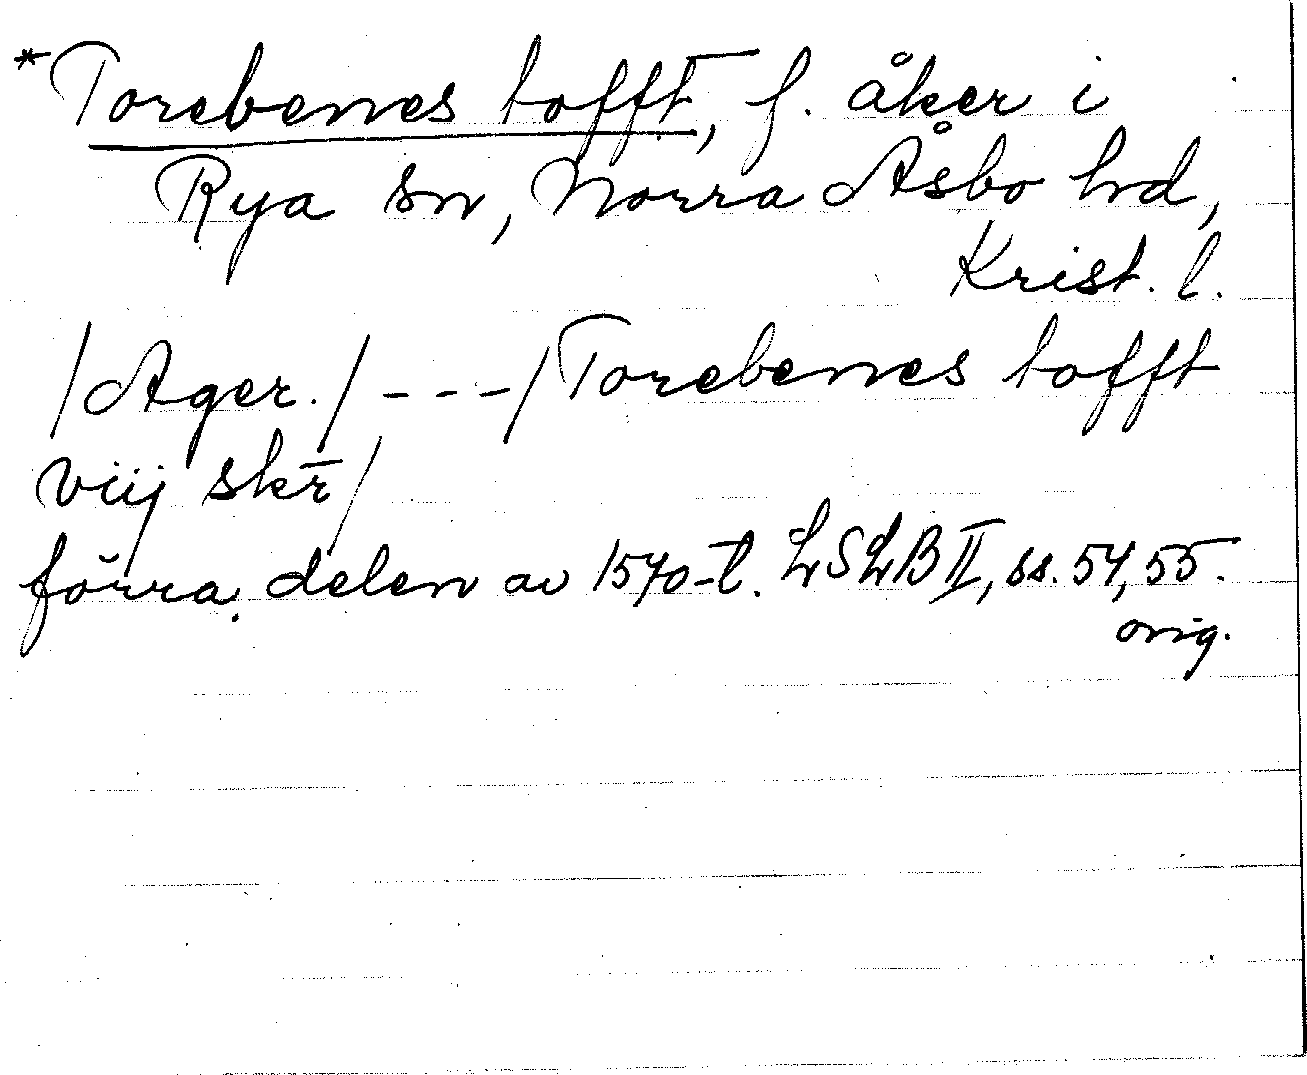 *Torebenes tofft, f. åker i
Rya sn, Norra Åsbo hd,
Krist. l.
/Ager./ - - - /Torebenes tofft
viij skr̄/
förra delen av 1570-t. LSLB II, ss. 54, 55.
orig.